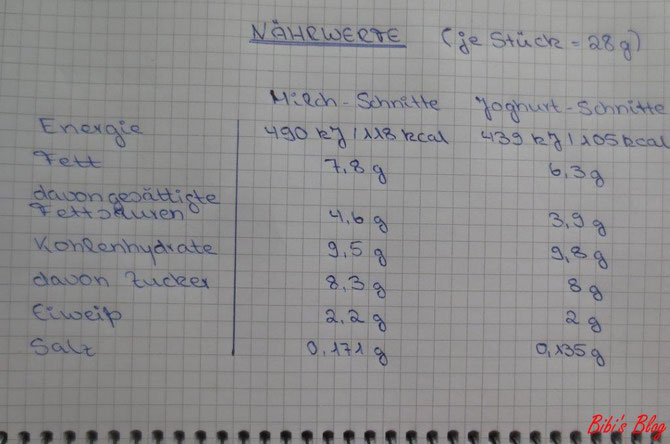 NÄHRWERTE (je Stück = 28g)
Milch-Schnitte Joghurt-Schnitte
Energie 490 kJ/118 kcal 439 kJ/105 kcal
Fett 7,8 g 6,3 g
davon gesättigte
Fettsäuren 4,6 g 3,9 g
Kohlenhydrate 9,5 g 9,8 g
davon Zucker 8,3 g 8 g
Eiweiß 2,2 g 2 g
Salz 0,171 g 0,135 g
Bibi's Blog